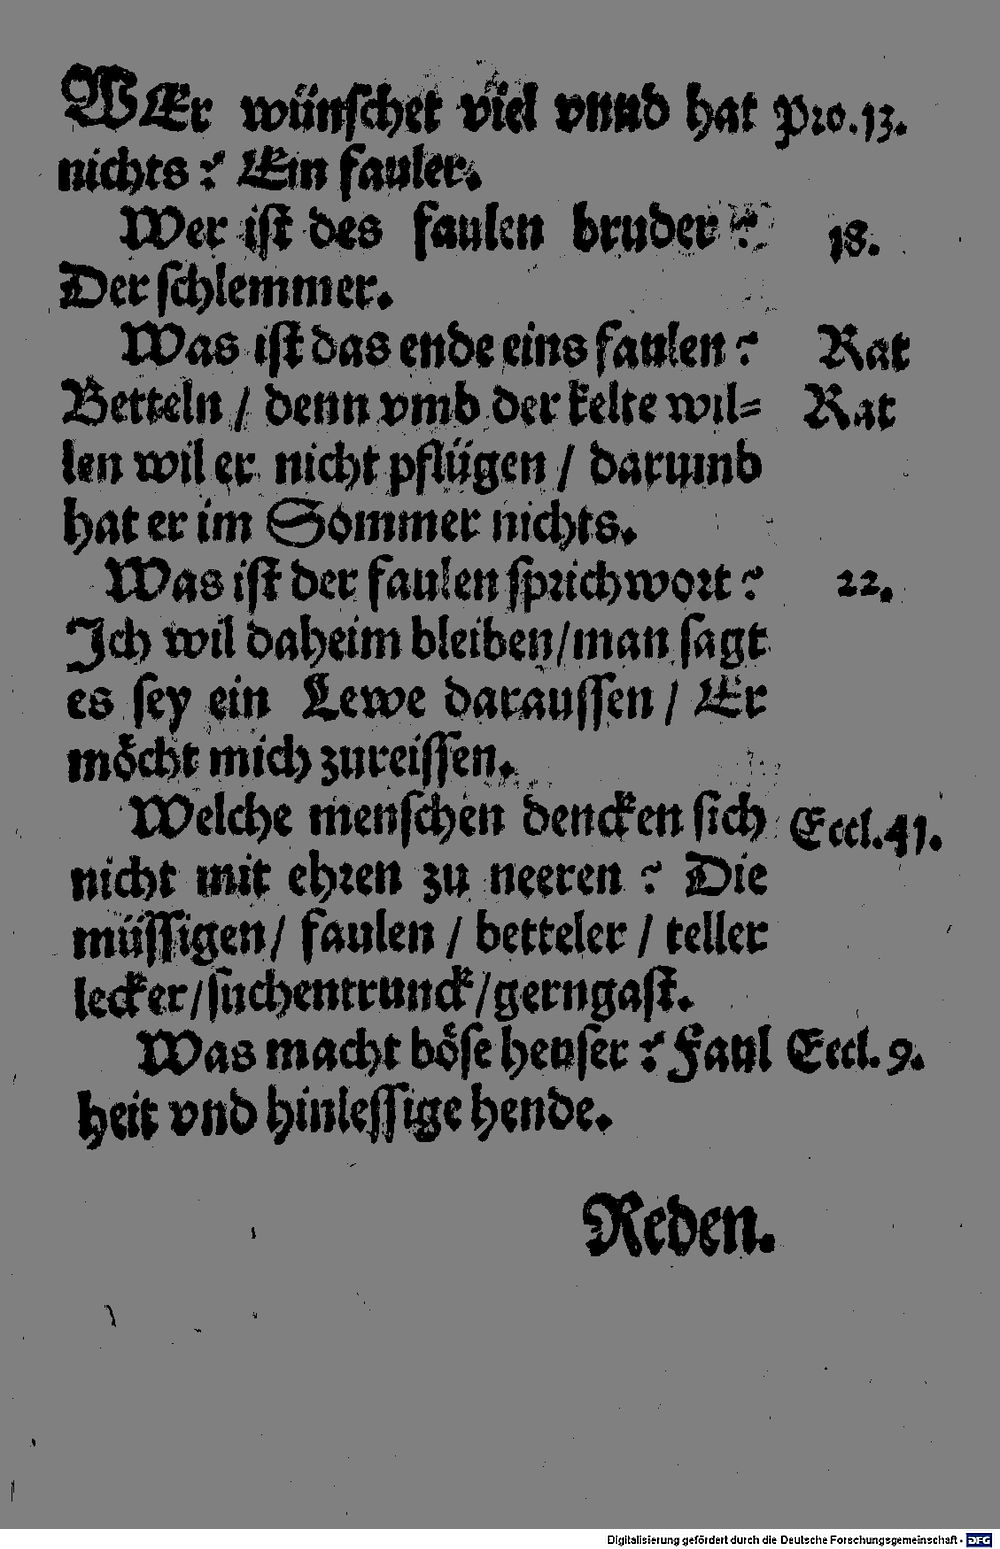 WEr wünſchet viel vnnd hat Pro. 13.
nichts? Ein fauler.
Wer iſt des faulen bruder? 18.
Der ſchlemmer.
Was iſt das ende eins faulen? Rat
Betteln / denn vmb der kelte wil= Rat
len wil er nicht pflügen / darumb
hat er im Sommer nichts.
Was iſt der faulen ſprichwort? 22.
Ich wil daheim bleiben/man ſagt
es ſey ein Lewe darauſſen / Er
möcht mich zureiſſen.
Welche menſchen dencken ſich Eccl. 41.
nicht mit ehren zu neeren? Die
müſſigen/ faulen / betteler / teller
lecker/ſuchentrunck/gerngaſt.
Was macht böſe heuſer? Faul Eccl. 9.
heit vnd hinleſſige hende.
Reden.
Digitalisierung gefördert durch die Deutsche Forschungsgemeinschaft - DFG